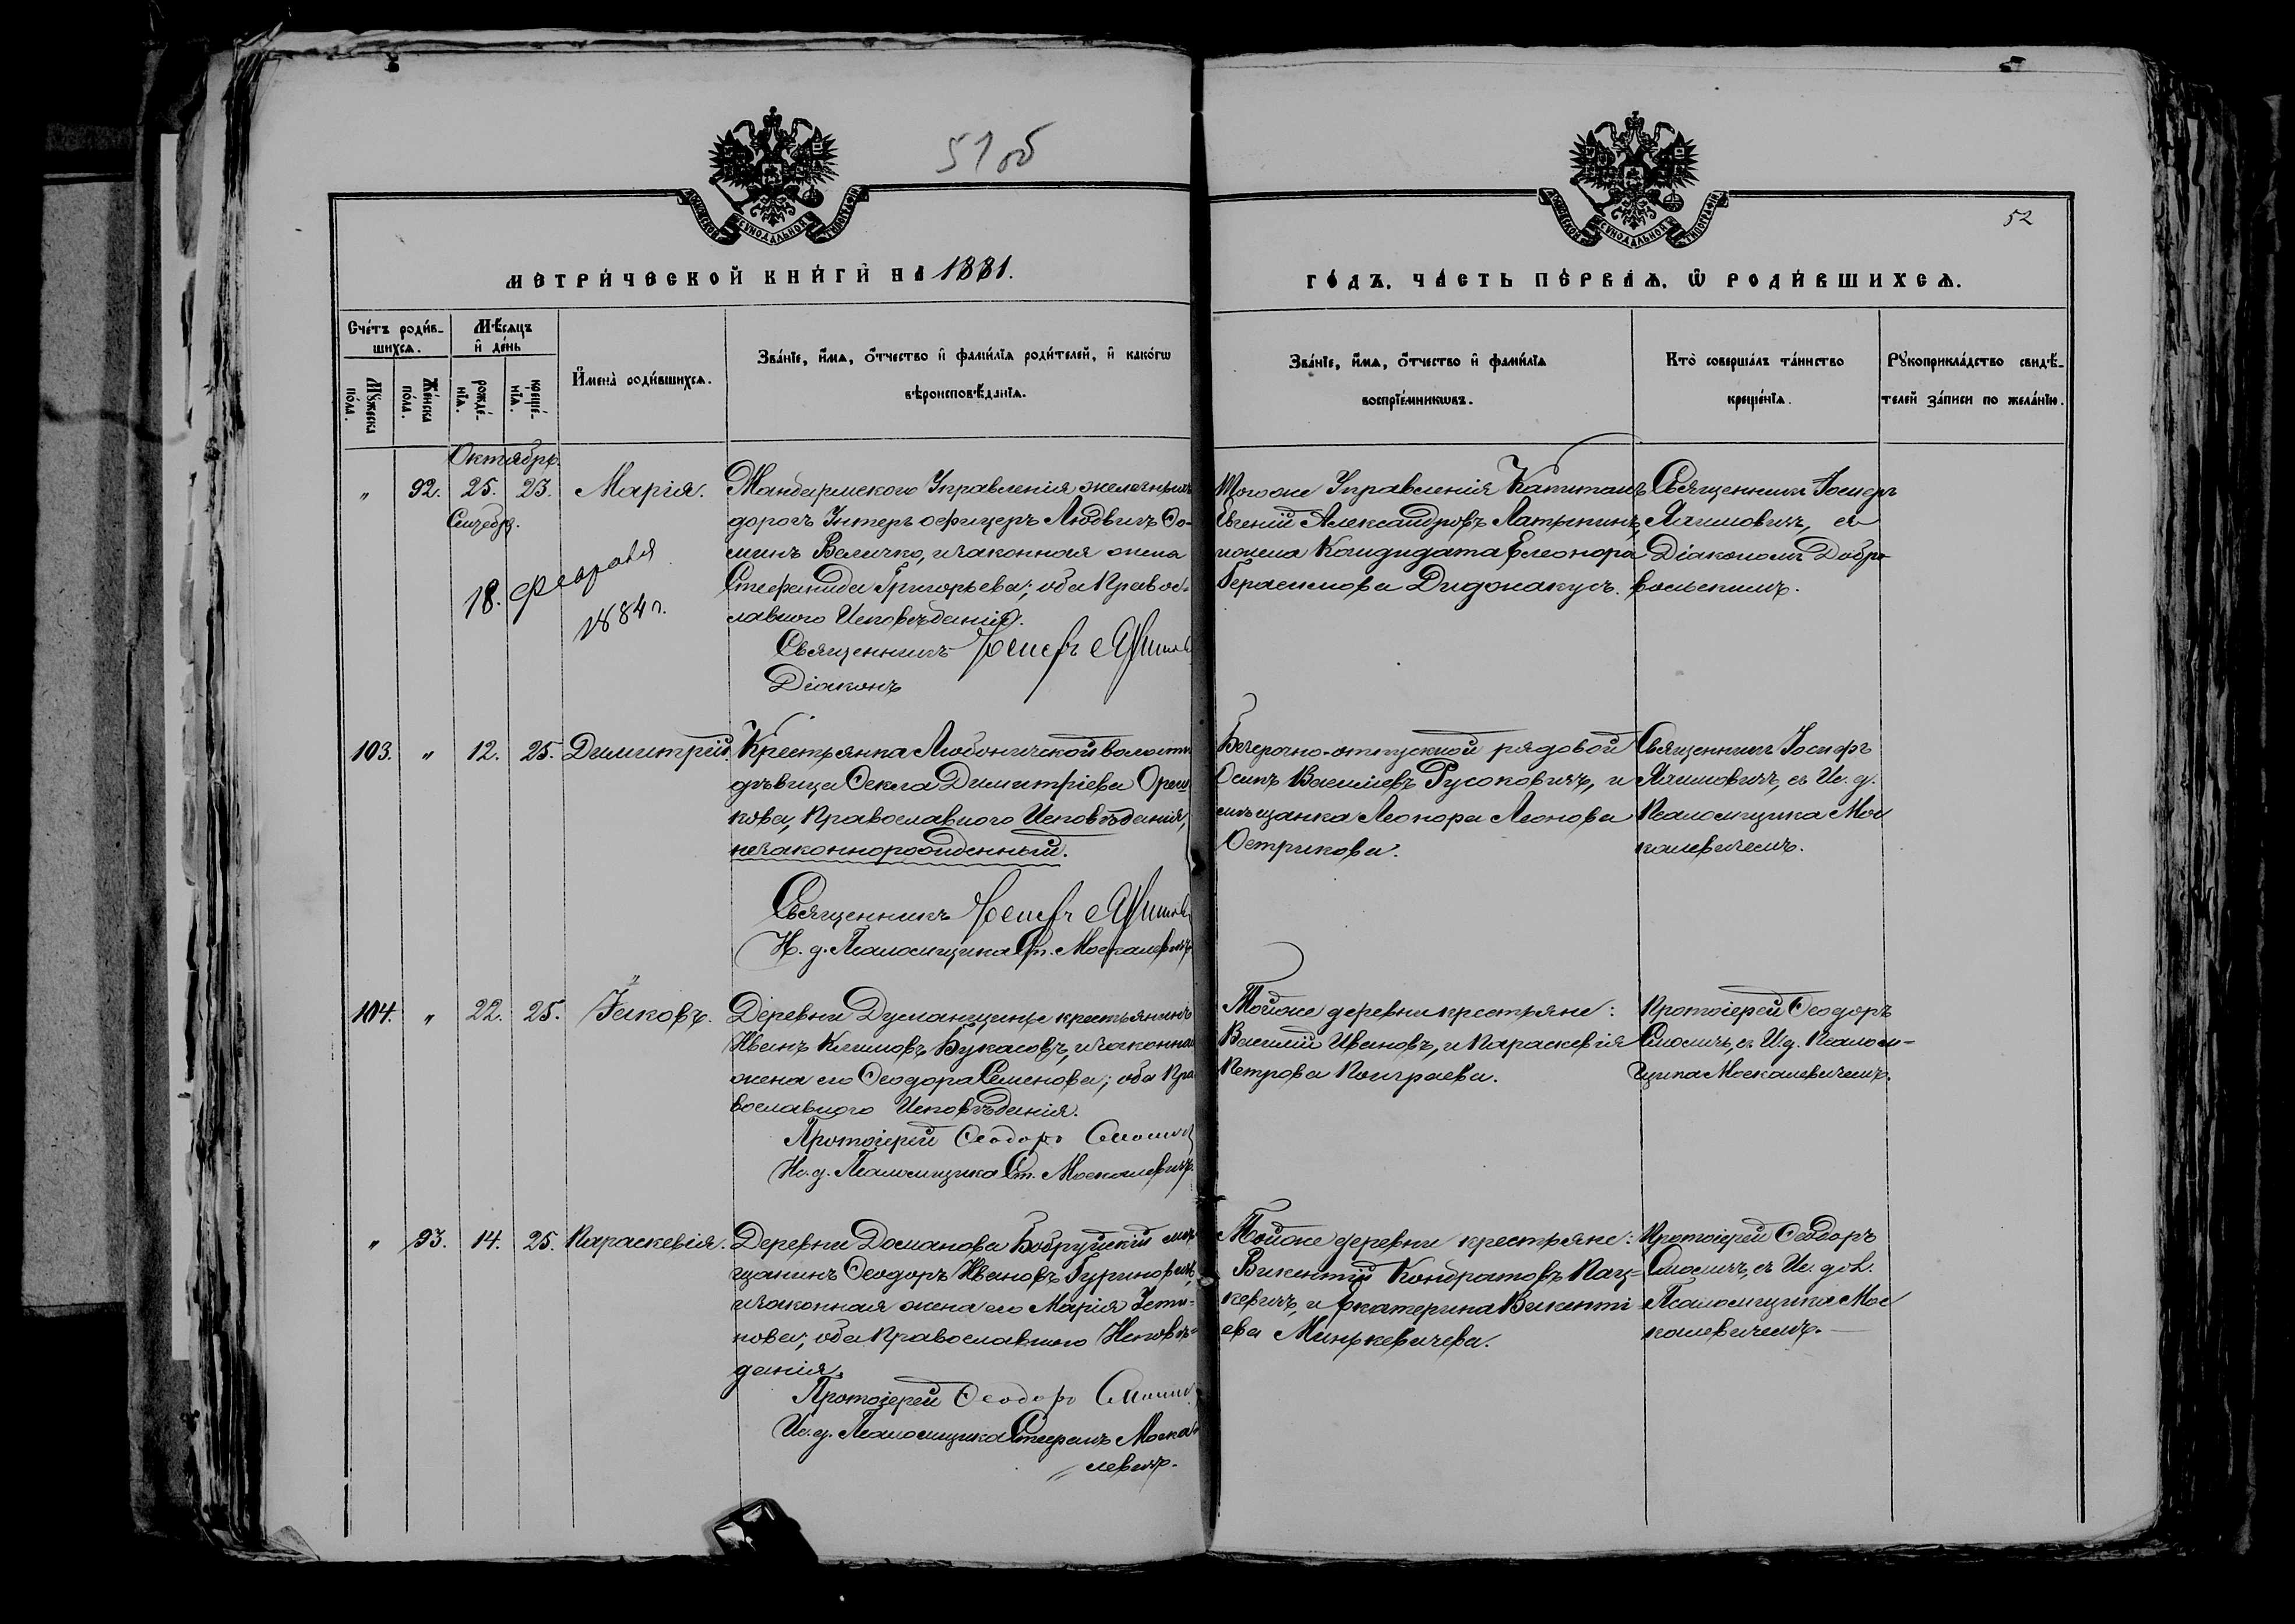 51 об
52
МОСКОВСКОЙ СУНОДАЛЬНОЙ ТИПОГРАФІИ
МОСКОВСКОЙ СУНОДАЛЬНОЙ ТИПОГРАФІИ
МЕТРИ́ЧЕСКОЙ КНИ́ГИ НА 1881.
ГО́ДЪ. ЧА́СТЬ ПЕ́РВАѦ. Ѡ РОДИ́ВШИХСѦ.
Сче́тъ роди́в-
шихсѧ.
Мꙋ́жеска по́ла.
Же́нска по́ла.
Мѣ́сѧцъ
и де́нь
рожде́-нїѧ.
креще́-нїѧ.
Имена̀ роди́вшихсѧ.
Зва́нїе, и́мѧ, о́тчество и фами́лїѧ роди́телей, и како́гѡ
вѣроисповѣ́данїѧ.
Зва́нїе, и́мѧ, о́тчество и фами́лїѧ
воспрїе́мникѡвъ.
Кто̀ соверша́лъ та́инство
креще́нїѧ.
Рꙋкоприкла́дство свидѣ́-
телей за́писи по жела́нїю.
Октябрь.
" 92. 25. 23. Марія.
Сентябр.
18. Февраля
1884 г.
Жандармскаго Управленія желѣзныхъ
дорогъ Унтеръ офицеръ Людвигъ Ѳо-
минъ Величко, и законная жена
Стефанида Григорьева; оба Правос-
лавного Исповѣданія.
Священникъ Іосифъ
Діаконъ
Того же Управленія Капитанъ
Евгеній Александровъ Латыкинъ,
и жена Кандидата Елеонора
Герасимова Дидонакусъ.
Священникъ Іосифъ
Якимовичъ, съ
Діакономъ Добро-
вольскимъ.
103. " 12. 25. Димитрій.
Крестьянка Любоничской волости
дѣвица Ѳекла Димитріева Ореш
кова, Православного Исповѣданія,
незаконнорожденный.
Священникъ Іосифъ
И. д. Псаломщика Ст. Москалевичъ
Безсрочно-отпускной рядовой
Осипъ Василіевъ Русоковичъ, и
мѣщанка Леонора Леонова
Острикова.
Священникъ Іосифъ
Якимовичъ, съ Ис. д.
Псаломщика Мос
калевичемъ.
104. " 22. 25. Іаковъ.
Деревни Думанщины крестьянинъ
Иванъ Климовъ Букасовъ, и законная
жена его Ѳеодора Семенова; оба Пра
вославного Исповѣданія.
Протоіерей Ѳеодоръ Смоличъ
Ис. д. Псаломщика Ст. Москалевичъ.
Той же деревни крестьяне:
Василій Ивановъ, и Параскевія
Петрова Поиграева.
Протоіерей Ѳеодоръ
Смоличъ, съ И. д. Псалом-
щика Москалевичемъ.
" 93. 14. 25. Параскевія.
Деревни Доманова Бобруйскій мѣ-
щанинъ Ѳеодоръ Ивановъ Гуриновичъ,
и законная жена его Марія Усти-
нова; оба Православного Исповѣ-
данія.
Протоіерей Ѳеодоръ Смоличъ
Ис. д. Псаломщика Стефанъ Моска-
левичъ.
Той же деревни крестьяне:
Викентій Кондратовъ Пац-
кевичъ, и Екатерина Викенті
ева Минькевичева.
Протоіерей Ѳеодоръ
Смоличъ, съ Ис. дол.
Псаломщика Мос
калевичемъ.